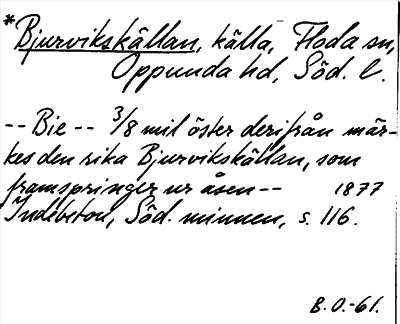 *Bjurvikskällan, källa, Floda sn,
Oppunda hd, Söd. l.
-- Bie -- 3/8 mil öster derifrån mär-
kes den rika Bjurvikskällan, som
framspringer ur åsen -- 1877
Indebetou, Söd. minnen, s. 116.
B.O.-61.